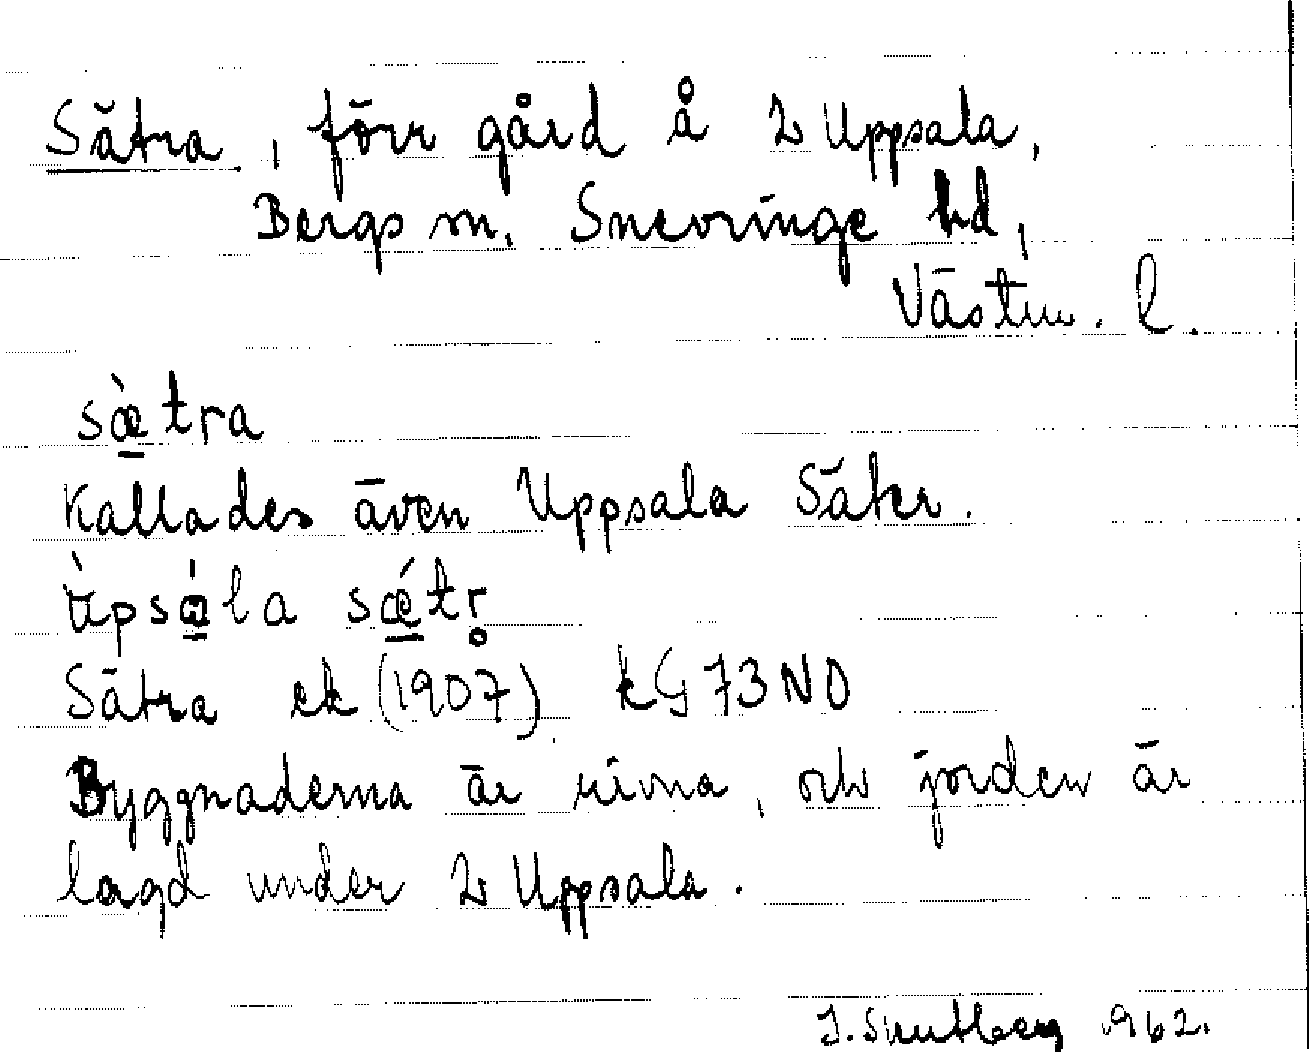 Sätra, förr gård å L Uppsala,
Bergs sn. Snevringe hd,
Västm. l.
sæ̀tra
Kallades även Uppsala Säter.
ùpsàla sǽtr̥
Sätra ek (1907) kG 73 NO
Byggnaderna är rivna, och jorden är
lagd under L Uppsala.
1962.